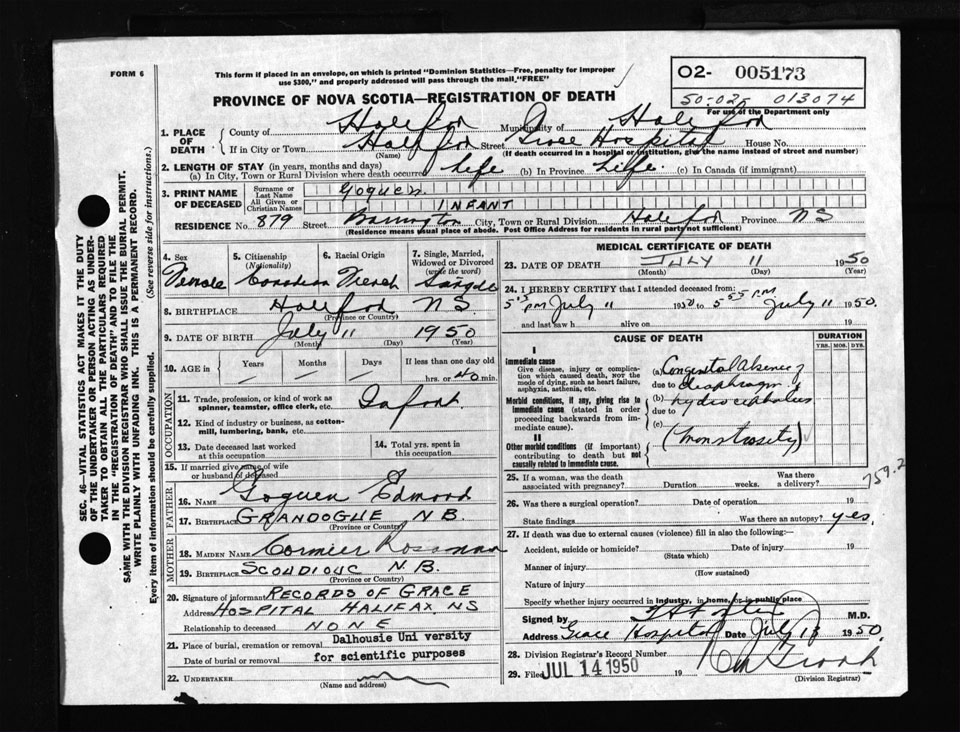 FORM 6
This form if placed in an envelope, on which is printed "Dominion Statistics—Free, penalty for improper
use $300," and properly addressed will pass through the mail, "FREE"
PROVINCE OF NOVA SCOTIA—REGISTRATION OF DEATH
O2- 005173
50-02- 013074
For use of the Department only
1. PLACE OF DEATH County of Halifax Municipality of Halifax
If in City or Town Halifax Street Grace Hospital House No.
(Name) (If death occurred in a hospital or institution, give the name instead of street and number)
2. LENGTH OF STAY (in years, months and days)
(a) In City, Town or Rural Division where death occurred life (b) In Province Life. (c) In Canada (if immigrant)
3. PRINT NAME OF DECEASED Surname or Last Name Goguen
All Given or Christian Names INFANT
RESIDENCE No. 879 Street Barrington City, Town or Rural Division Halifax Province NS
(Residence means usual place of abode. Post Office Address for residents in rural parts not sufficient)
4. Sex 5. Citizenship (Nationality) 6. Racial Origin 7. Single, Married, Widowed or Divorced (write the word)
Female Canadian French Single
8. BIRTHPLACE Halifax N S.
(Province or Country)
9. DATE OF BIRTH July 11 1950
(Month) (Day) (Year)
10. AGE in Years Months Days If less than one day old
hrs. or 40 min.
OCCUPATION
11. Trade, profession, or kind of work as spinner, teamster, office clerk, etc. Infant.
12. Kind of industry or business, as cotton-mill, lumbering, bank, etc.
13. Date deceased last worked at this occupation 14. Total yrs. spent in this occupation
15. If married give name of wife or husband of deceased
FATHER
16. NAME Goguen Edmond
17. BIRTHPLACE GRANDOGUE N B.
(Province or Country)
MOTHER
18. MAIDEN NAME Cormier
19. BIRTHPLACE SCOUDIOUC N.B.
(Province or Country)
20. Signature of informant RECORDS OF GRACE
Address HOSPITAL HALIFAX. NS
Relationship to deceased NONE
21. Place of burial, cremation or removal Dalhousie Uni versity
Date of burial or removal for scientific purposes
22. UNDERTAKER
(Name and address)
MEDICAL CERTIFICATE OF DEATH
23. DATE OF DEATH JULY 11 1950
(Month) (Day) (Year)
24. I HEREBY CERTIFY that I attended deceased from:
PM July 11 1950 to 5 55 PM July 11 1950.
and last saw h alive on 19
CAUSE OF DEATH DURATION
YRS. MOS. DYS.
I
Immediate cause
Give disease, injury or complication which caused death, not the mode of dying, such as heart failure, asphyxia, asthenia, etc.
(a) Congenital Absence of
due to diaphragm &
Morbid conditions, if any, giving rise to immediate cause (stated in order proceeding backwards from immediate cause).
(b) hydrocephalus
due to
(c)
II
Other morbid conditions (if important) contributing to death but not causally related to immediate cause.
(monstrosity)
759.2
25. If a woman, was the death associated with pregnancy? Duration weeks. Was there a delivery?
26. Was there a surgical operation? Date of operation 19
State findings Was there an autopsy? yes.
27. If death was due to external causes (violence) fill in also the following:—
Accident, suicide or homicide? Date of injury 19
(State which)
Manner of injury
(How sustained)
Nature of injury
Specify whether injury occurred in industry, in home, or in public place
Signed by M.D.
Address Grace Hospital Date July 13 1950.
28. Division Registrar's Record Number
29. Filed JUL 14 1950 19
(Division Registrar)
SEC. 46—VITAL STATISTICS ACT MAKES IT THE DUTY
OF THE UNDERTAKER OR PERSON ACTING AS UNDER-
TAKER TO OBTAIN ALL THE PARTICULARS REQUIRED
IN THE "REGISTRATION OF DEATH" AND TO FILE THE
SAME WITH THE DIVISION REGISTRAR WHO SHALL ISSUE THE BURIAL PERMIT.
WRITE PLAINLY WITH UNFADING INK. THIS IS A PERMANENT RECORD.
Every item of information should be carefully supplied. (See reverse side for instructions.)